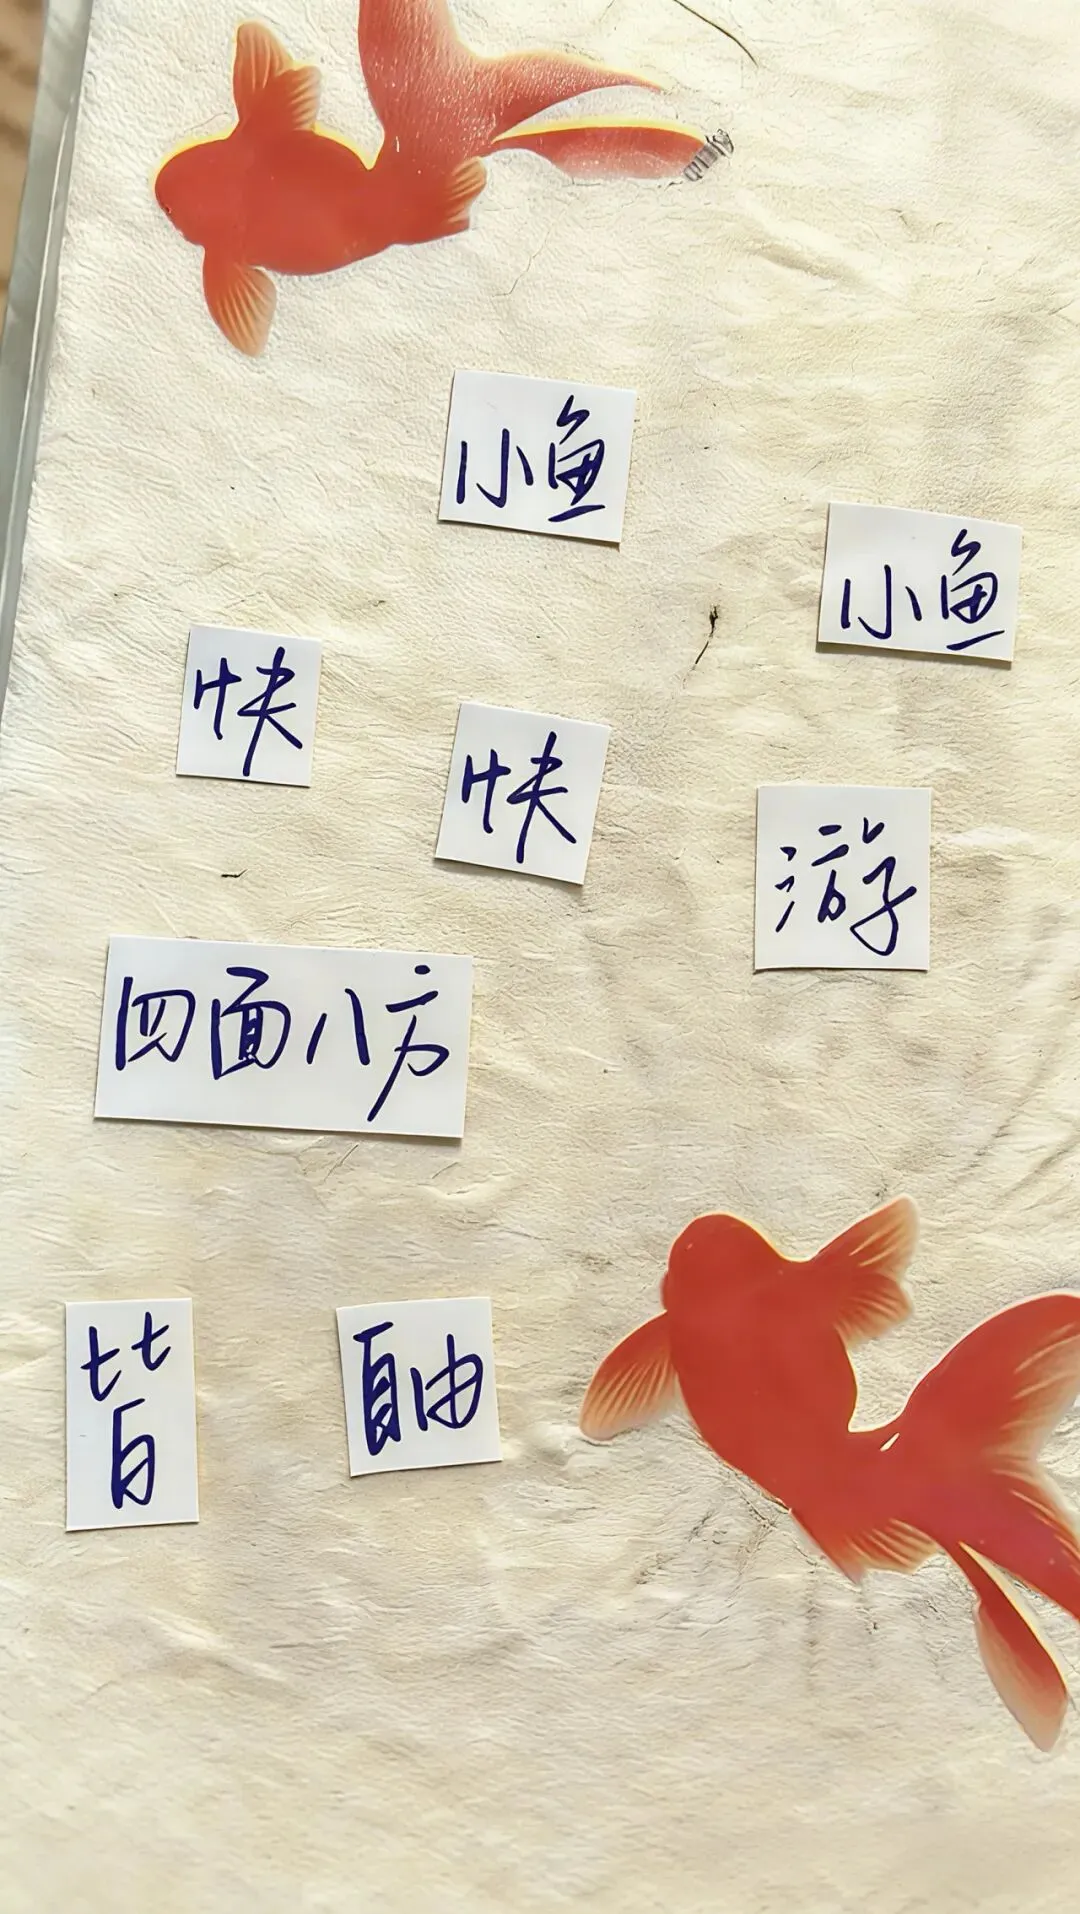 小鱼 小鱼
快 快 游
四面八方
皆 自由